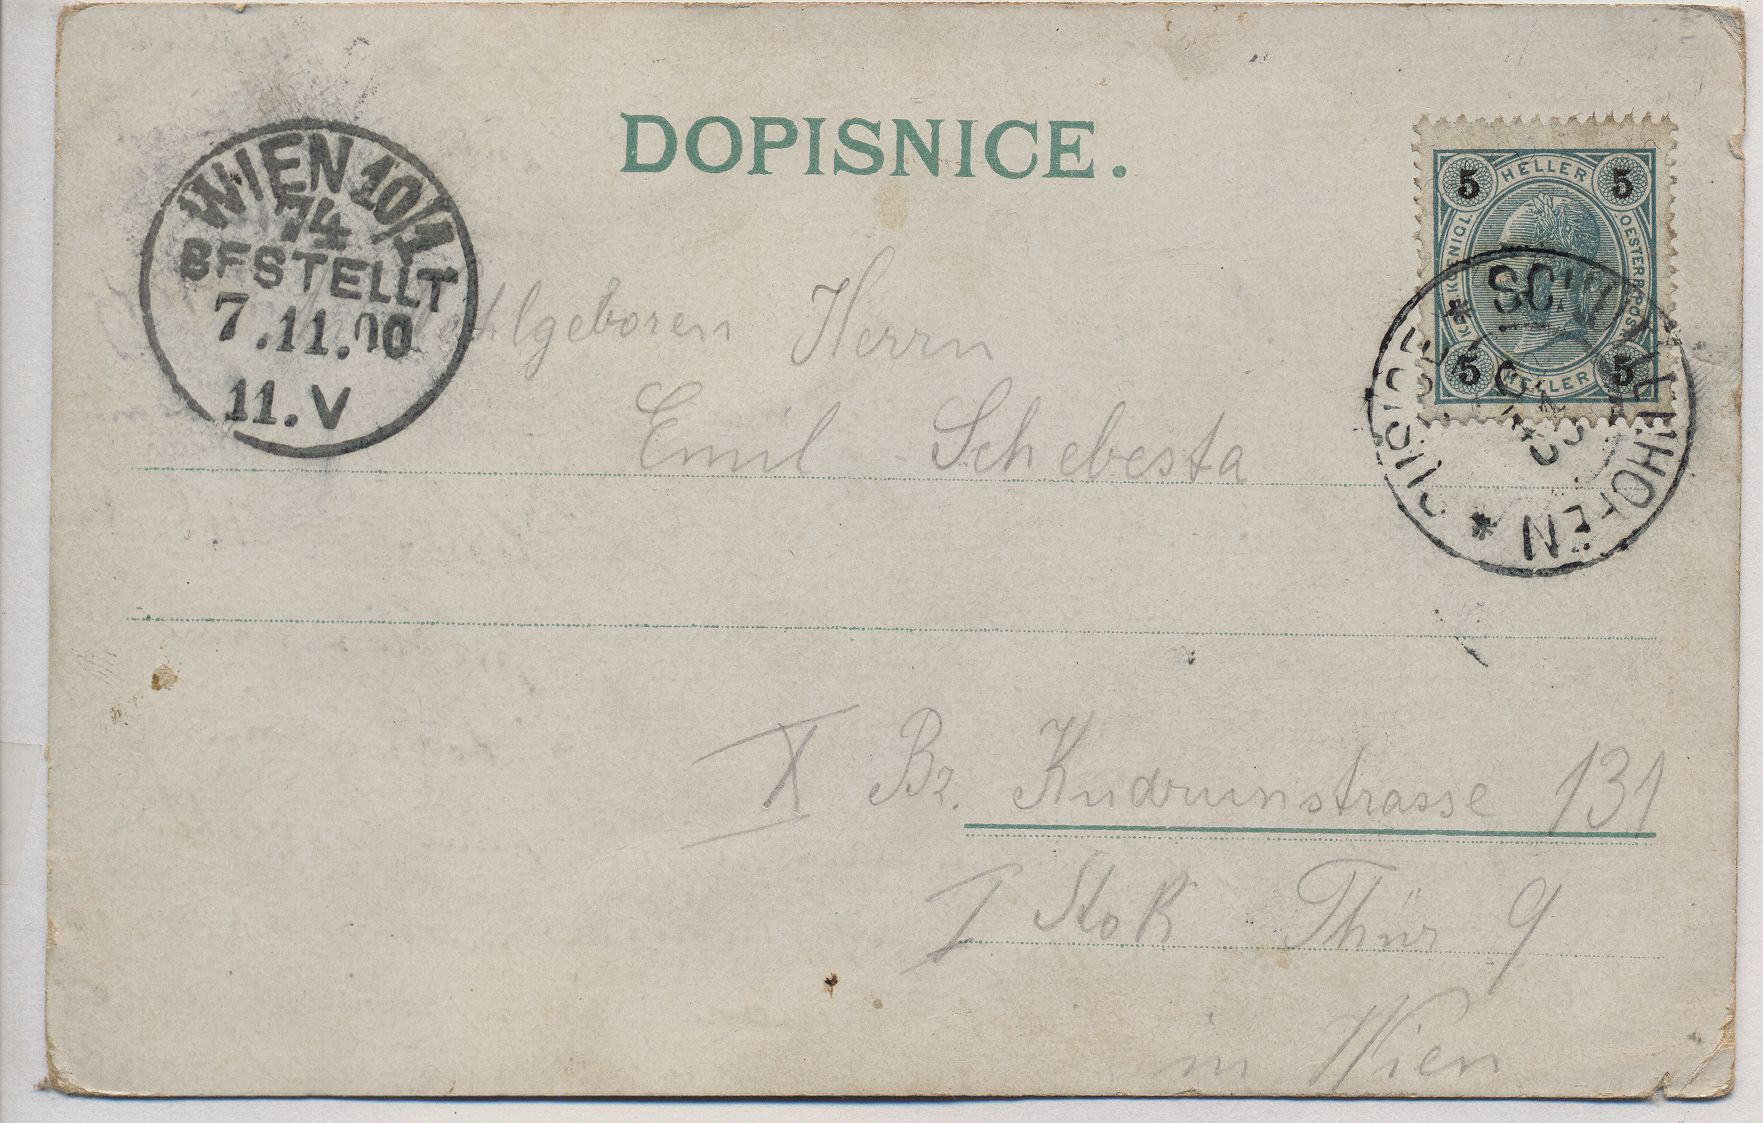 DOPISNICE.
WIEN 10/1
74
BESTELLT
7.11.00
11.V
5 HELLER 5
5 HELLER 5
Wohlgeboren Herrn
Emil Schebesta
X Bz. Kudrunstrasse 131
I Stok Thür 9
in Wien